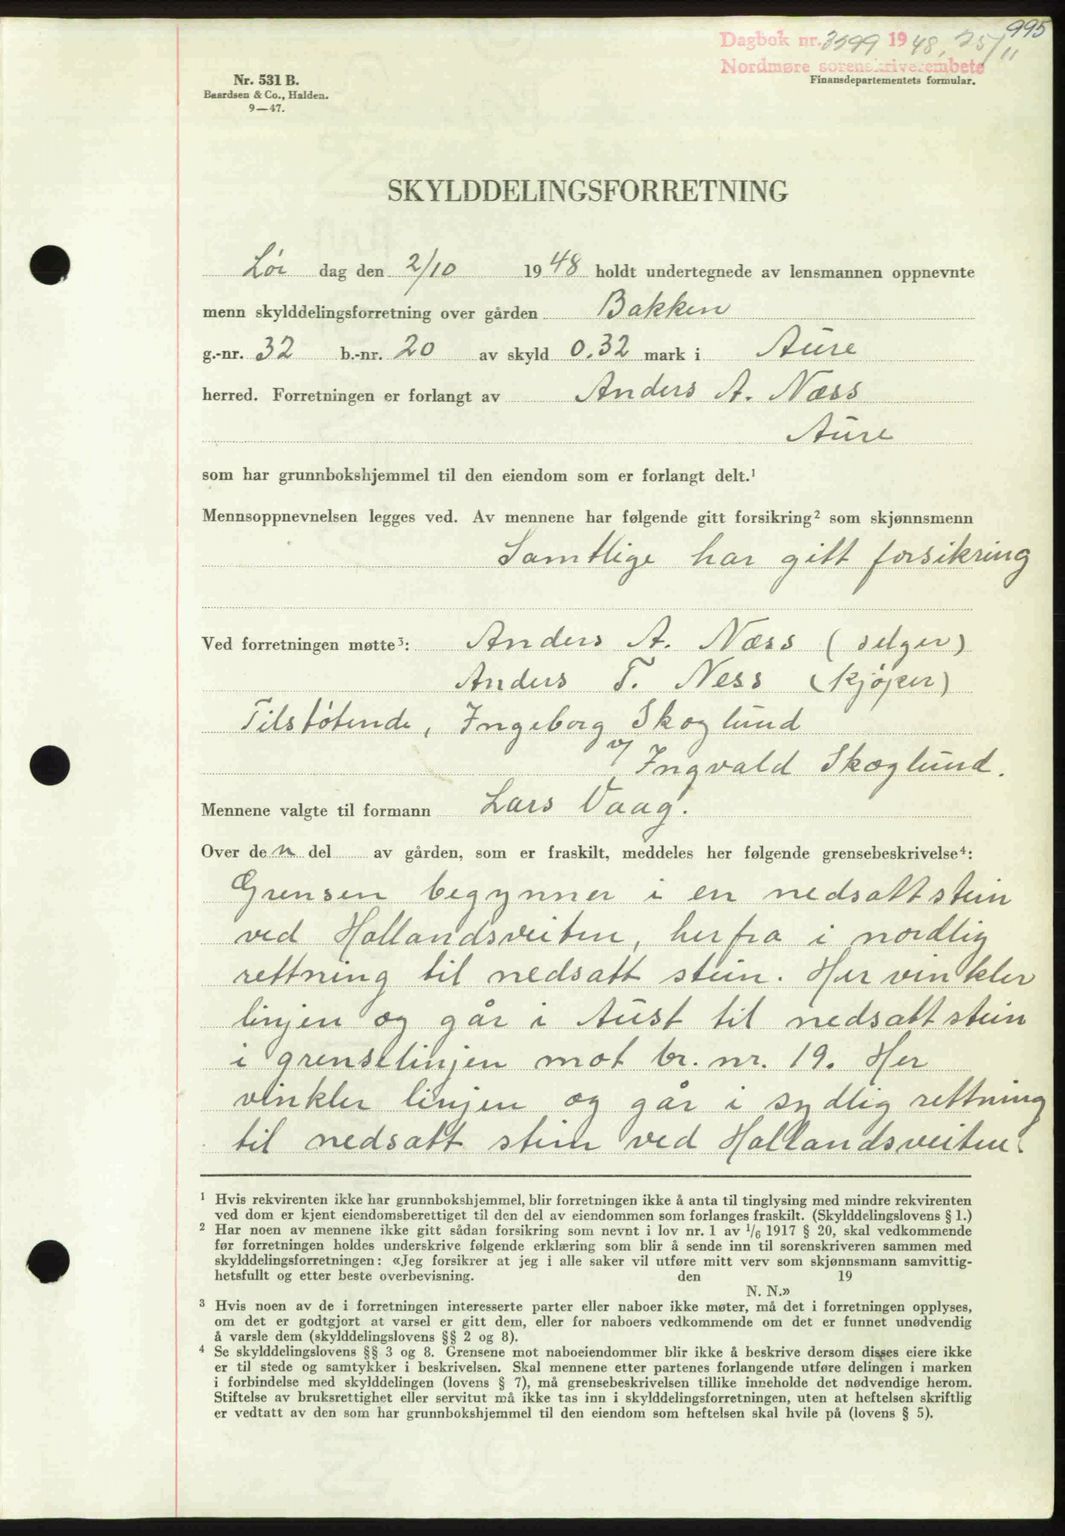 995
Dagbok nr. 3599 1948, 25/11
Nordmøre sorenskriverembete
Nr. 531 B.
Baardsen & Co., Halden.
9—47.
Finansdepartementets formular.
SKYLDDELINGSFORRETNING
Lör dag den 2/10 1948 holdt undertegnede av lensmannen oppnevnte
menn skylddelingsforretning over gården Bakken
g.-nr. 32 b.-nr. 20 av skyld 0.32 mark i Aure
herred. Forretningen er forlangt av Anders A. Næss
Aure
som har grunnbokshjemmel til den eiendom som er forlangt delt.¹
Mennsoppnevnelsen legges ved. Av mennene har følgende gitt forsikring² som skjønnsmenn
Samtlige har gitt forsikring
Ved forretningen møtte³: Anders A. Næss (selger)
Anders T. Ness (kjøper)
Tilstøtende, Ingeborg Skoglund
v/ Ingvald Skoglund.
Mennene valgte til formann Lars Vaag.
Over den del av gården, som er fraskilt, meddeles her følgende grensebeskrivelse⁴:
Grensen begynner i en nedsatt stein
ved Hollandsveiten, herfra i nordlig
rettning til nedsatt stein. Her vinkler
linjen og går i Aust til nedsatt stein
i grenselinjen mot br. nr. 19. Her
vinkler linjen og går i sydlig rettning
til nedsatt stein ved Hollandsveiten.
¹ Hvis rekvirenten ikke har grunnbokshjemmel, blir forretningen ikke å anta til tinglysing med mindre rekvirenten
ved dom er kjent eiendomsberettiget til den del av eiendommen som forlanges fraskilt. (Skylddelingslovens § 1.)
² Har noen av mennene ikke gitt sådan forsikring som nevnt i lov nr. 1 av 1/6 1917 § 20, skal vedkommende
før forretningen holdes underskrive følgende erklæring som blir å sende inn til sorenskriveren sammen med
skylddelingsforretningen: «Jeg forsikrer at jeg i alle saker vil utføre mitt verv som skjønnsmann samvittig-
hetsfullt og etter beste overbevisning. den 19
N. N.»
³ Hvis noen av de i forretningen interesserte parter eller naboer ikke møter, må det i forretningen opplyses,
om det er godtgjort at varsel er gitt dem, eller for naboers vedkommende om det er funnet unødvendig
å varsle dem (skylddelingslovens §§ 2 og 8).
⁴ Se skylddelingslovens §§ 3 og 8. Grensene mot naboeiendommer blir ikke å beskrive dersom disses eiere ikke
er til stede og samtykker i beskrivelsen. Skal mennene etter partenes forlangende utføre delingen i marken
i forbindelse med skylddelingen (lovens § 7), må grensebeskrivelsen tillike inneholde det nødvendige herom.
Stiftelse av bruksrettighet eller servitut må ikke tas inn i skylddelingsforretningen, uten at heftelsen skriftlig
er vedtatt av den som har grunnbokshjemmel til den eiendom som heftelsen skal hvile på (lovens § 5).